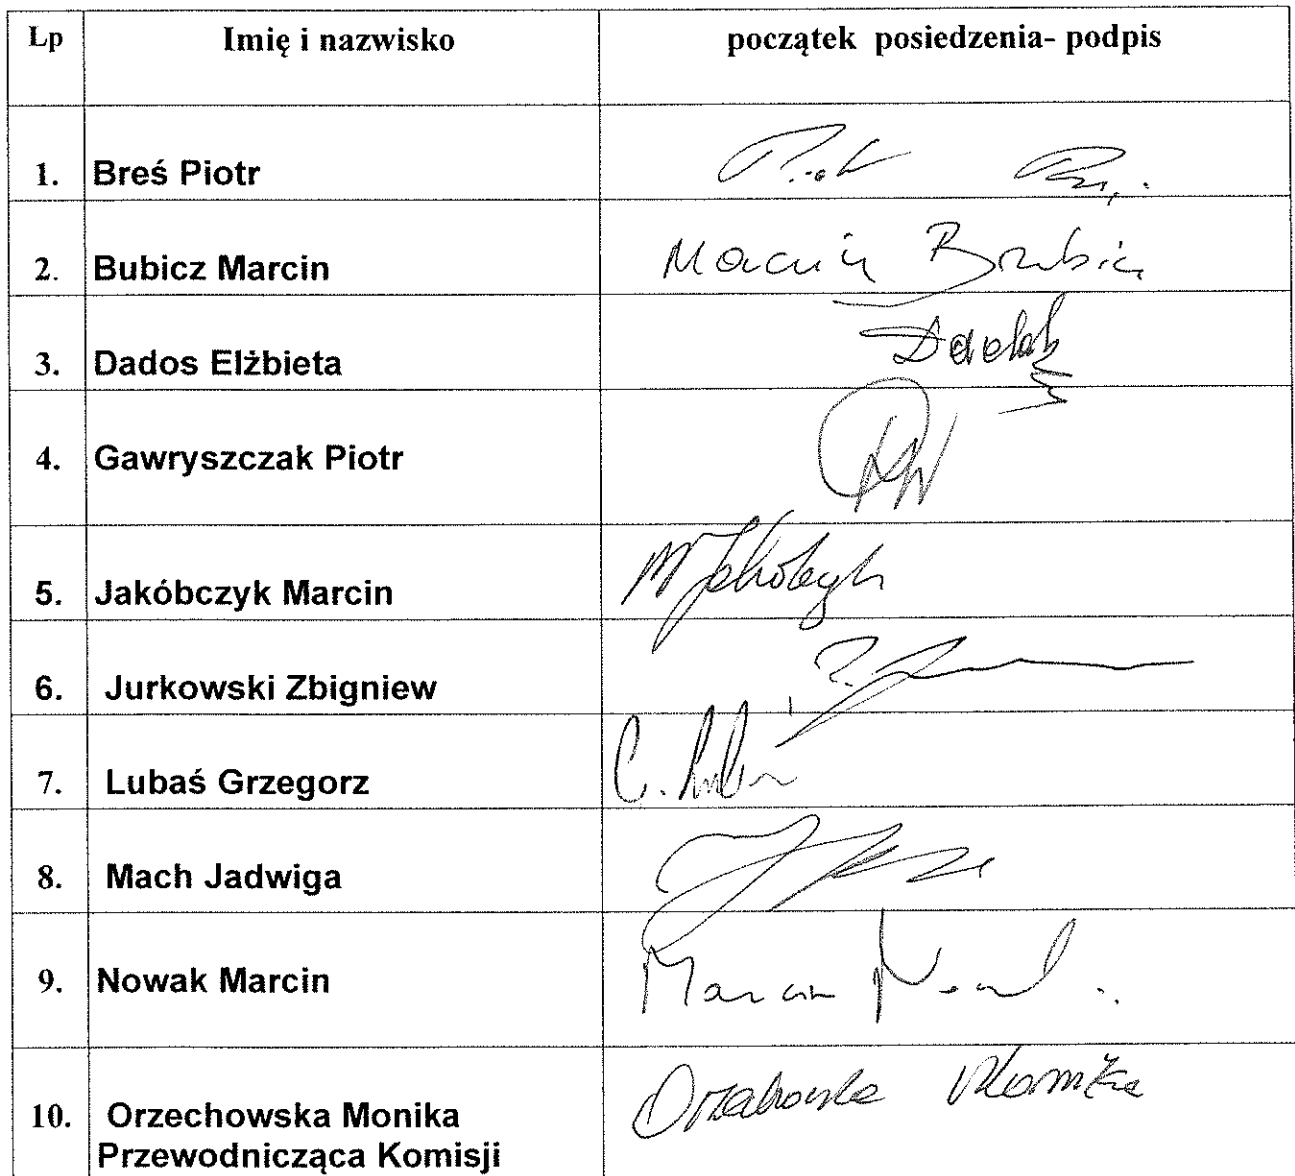 Lp Imię i nazwisko początek posiedzenia- podpis
1. Breś Piotr
2. Bubicz Marcin Marcin Bubicz
3. Dados Elżbieta
4. Gawryszczak Piotr
5. Jakóbczyk Marcin M Jakóbczyk
6. Jurkowski Zbigniew
7. Lubaś Grzegorz
8. Mach Jadwiga
9. Nowak Marcin Marcin Nowak
10. Orzechowska Monika Orzechowska Monika
Przewodnicząca Komisji